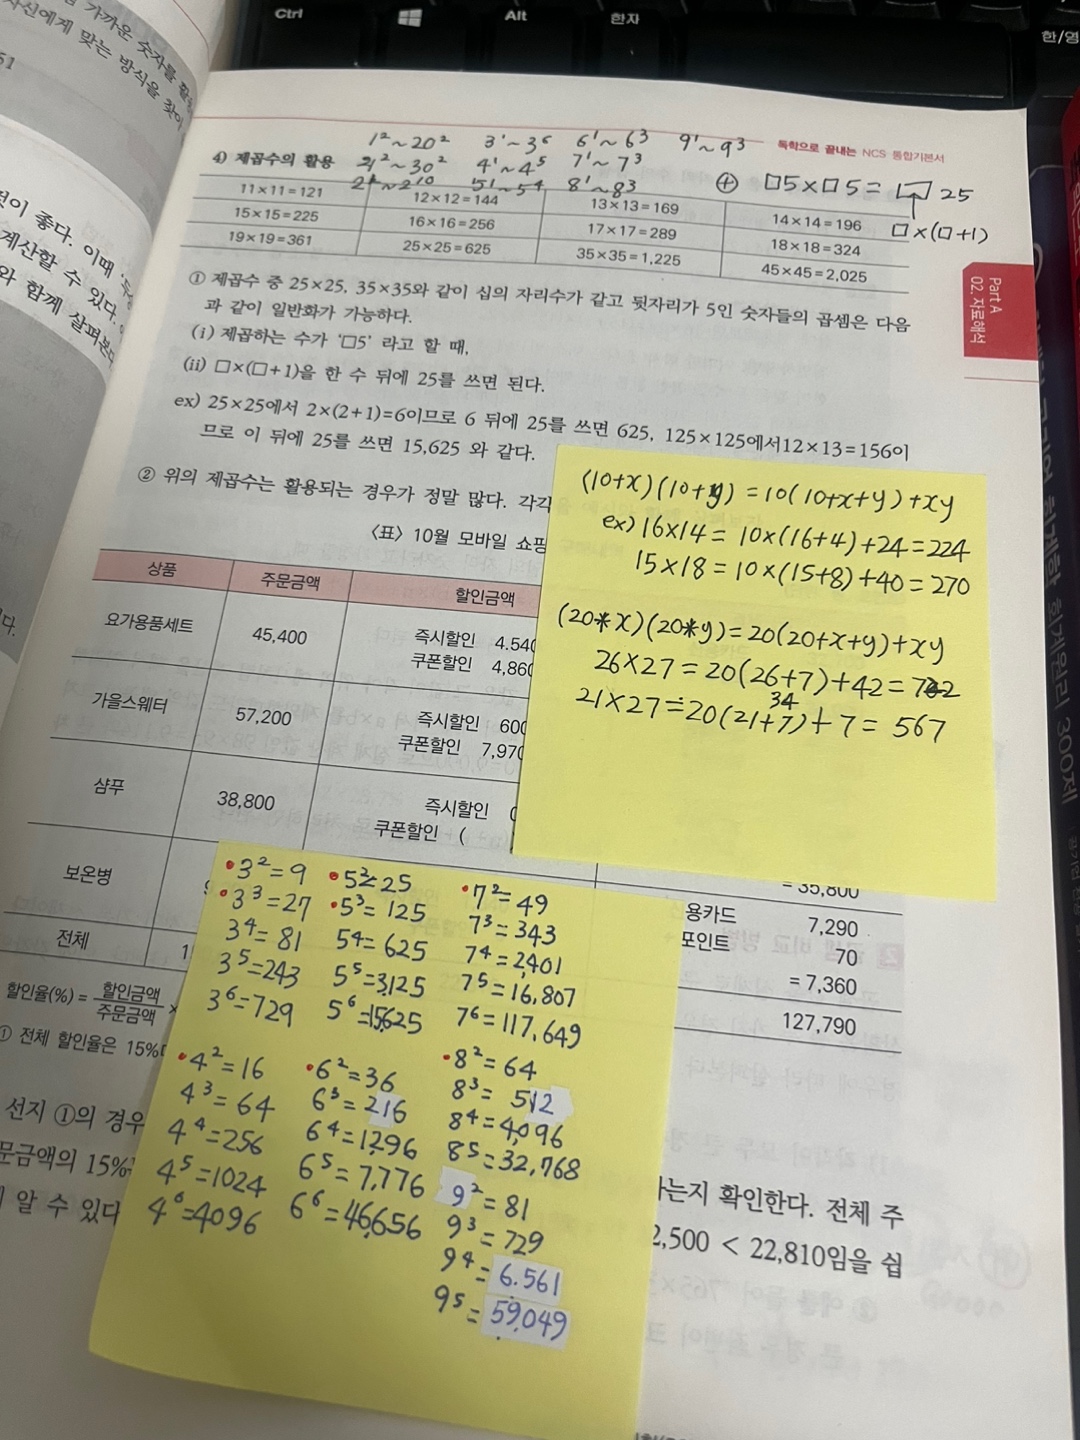 Ctrl
Alt
한자
한/영
가까운 숫자를
자신에게 맞는 방식을 찾아
51
것이 좋다. 이때
계산할 수 있다.
와 함께 살펴본다
독학으로 끝내는 NCS 통합기본서
1²~20² 3¹~3⁶ 6¹~6³ 9¹~9³
4) 제곱수의 활용 21²~30² 4¹~4⁵ 7¹~7³
2¹~2¹⁰ 5¹~5⁴ 8¹~8³
⊕ □5×□5= □25
□×(□+1)
11×11=121 12×12=144 13×13=169 14×14=196
15×15=225 16×16=256 17×17=289 18×18=324
19×19=361 25×25=625 35×35=1,225 45×45=2,025
Part A
02. 자료해석
① 제곱수 중 25×25, 35×35와 같이 십의 자리수가 같고 뒷자리가 5인 숫자들의 곱셈은 다음
과 같이 일반화가 가능하다.
(i) 제곱하는 수가 '□5' 라고 할 때,
(ii) □×(□+1)을 한 수 뒤에 25를 쓰면 된다.
ex) 25×25에서 2×(2+1)=6이므로 6 뒤에 25를 쓰면 625, 125×125에서12×13=156이
므로 이 뒤에 25를 쓰면 15,625 와 같다.
② 위의 제곱수는 활용되는 경우가 정말 많다. 각각
〈표〉 10월 모바일 쇼핑
상품 주문금액 할인금액
요가용품세트 45,400 즉시할인 4,540
쿠폰할인 4,860
가을스웨터 57,200 즉시할인 600
쿠폰할인 7,970
샴푸 38,800 즉시할인 0
쿠폰할인 (
= 35,800
보온병
용카드 7,290
포인트 70
= 7,360
전체 1 127,790
할인율(%) = 할인금액
주문금액 ×
① 전체 할인율은 15%
선지 ①의 경우
하는지 확인한다. 전체 주
문금액의 15%
2,500 < 22,810임을 쉽
알 수 있다
(10+x)(10+y)=10(10+x+y)+xy
ex) 16×14= 10×(16+4)+24=224
15×18=10×(15+8)+40=270
(20*x)(20*y)=20(20+x+y)+xy
26×27=20(26+7)+42=702
34
21×27=20(21+7)+7= 567
3²=9 5²=25 7²=49
3³=27 5³=125 7³=343
3⁴=81 5⁴=625 7⁴=2,401
3⁵=243 5⁵=3,125 7⁵=16,807
3⁶=729 5⁶=15,625 7⁶=117,649
4²=16 6²=36 8²=64
4³=64 6³=216 8³=512
4⁴=256 6⁴=1,296 8⁴=4,096
4⁵=1024 6⁵=7,776 8⁵=32,768
4⁶=4096 6⁶=46,656 9²=81
9³=729
9⁴=6.561
9⁵=59,049
300제